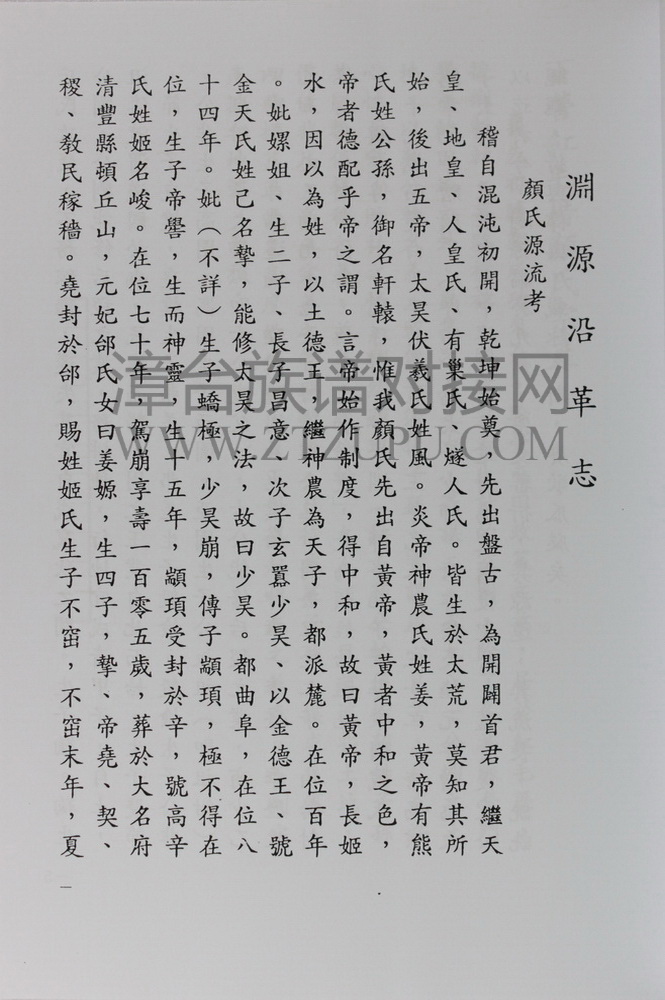 淵源沿革志
顏氏源流考
稽自混沌初開，乾坤始奠，先出盤古，為開闢首君，繼天
皇、地皇、人皇氏、有巢氏、燧人氏。皆生於太荒，莫知其所
始，後出五帝，太昊伏羲氏姓風。炎帝神農氏姓姜，黃帝有熊
氏姓公孫，御名軒轅，惟我顏氏先出自黃帝，黃者中和之色，
帝者德配乎帝之謂。言帝始作制度，得中和，故曰黃帝，長姬
水，因以為姓，以土德王，繼神農為天子，都派麓。在位百年
。妣嫘姐、生二子、長子昌意、次子玄囂少昊、以金德王、號
金天氏姓己名摯，能修太昊之法，故曰少昊。都曲阜，在位八
十四年。妣（不詳）生子蟜極，少昊崩，傳子顓頊，極不得在
位，生子帝嚳，生而神靈，生十五年，顓頊受封於辛，號高辛
氏姓姬名峻。在位七十年，駕崩享壽一百零五歲，葬於大名府
清豐縣頓丘山，元妃邰氏女曰姜嫄，生四子，摯、帝堯、契、
稷、教民稼穡。堯封於邰，賜姓姬氏生子不窋，不窋末年，夏
一
漳台族谱对接网
WWW.ZTZUPU.COM